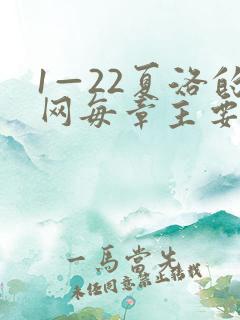 1—22夏洛的
网每章主要
一馬當先
未经同意禁止转载